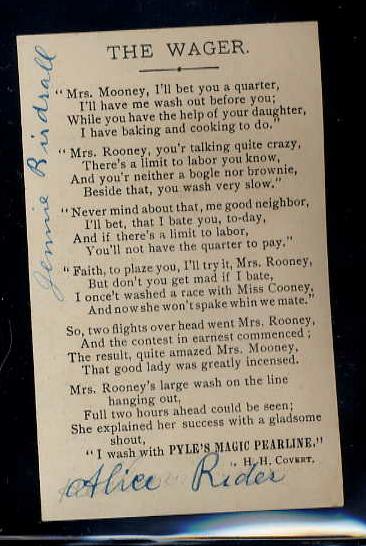 THE WAGER.
"Mrs. Mooney, I'll bet you a quarter,
I'll have me wash out before you;
While you have the help of your daughter,
I have baking and cooking to do."
"Mrs. Rooney, you'r talking quite crazy,
There's a limit to labor you know,
And you'r neither a bogle nor brownie,
Beside that, you wash very slow."
"Never mind about that, me good neighbor,
I'll bet, that I bate you, to-day,
And if there's a limit to labor,
You'll not have the quarter to pay."
"Faith, to plaze you, I'll try it, Mrs. Rooney,
But don't you get mad if I bate,
I once't washed a race with Miss Cooney,
And now she won't spake whin we mate."
So, two flights over head went Mrs. Rooney,
And the contest in earnest commenced;
The result, quite amazed Mrs. Mooney,
That good lady was greatly incensed.
Mrs. Rooney's large wash on the line
hanging out,
Full two hours ahead could be seen;
She explained her success with a gladsome
shout,
"I wash with PYLE'S MAGIC PEARLINE."
H. H. COVERT.
Alice Rider
Jennie Birdsall